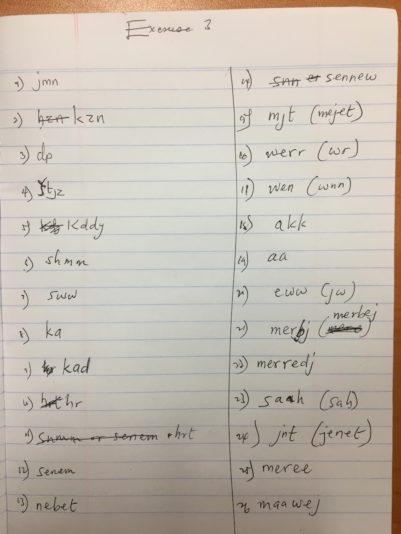 Exercise 3
1) jmn
2) kzn
3) dp
4) ztjz
5) kddy
6) shmm
7) sww
8) ka
9) kad
10) hr
11) hrt
12) senem
13) nebet
14) sennew
15) mjt (mejet)
16) werr (wr)
17) wen (wnn)
18) akk
19) aa
20) eww (jw)
21) merbj (merbej)
22) merredj
23) saah (sah)
24) jnt (jenet)
25) meree
26 maawej